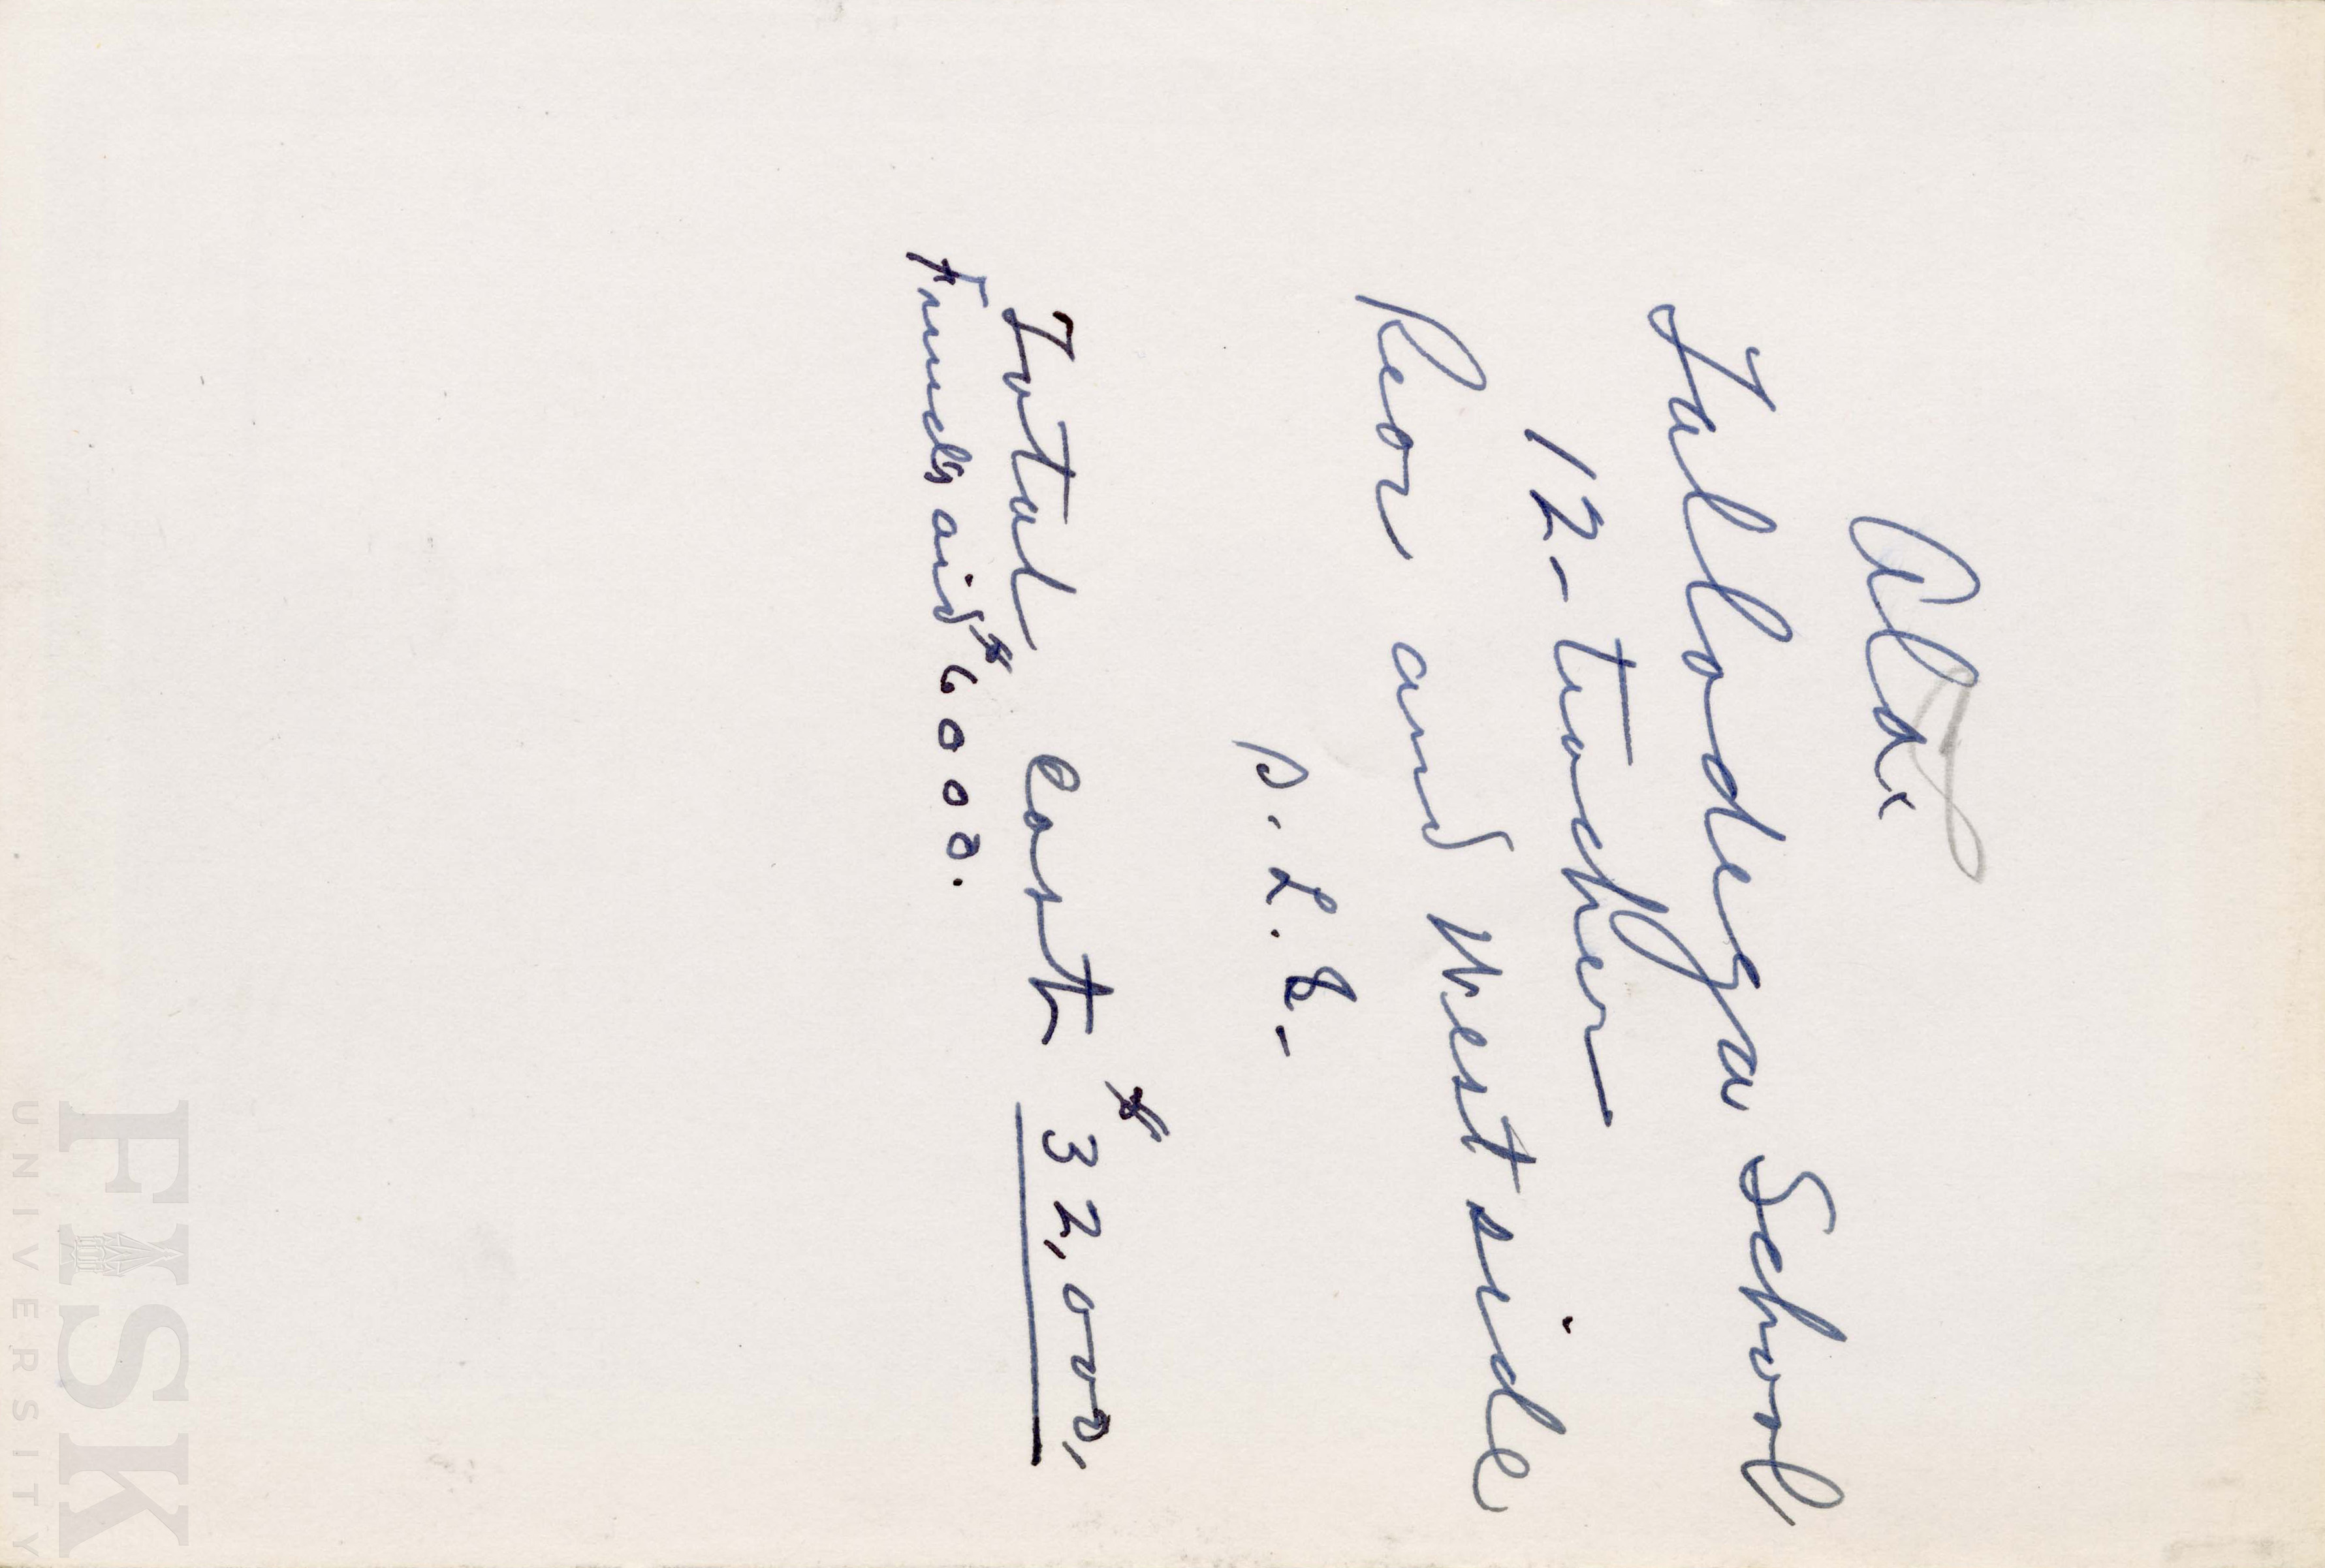 Ala.
Talladega School
12-teacher
Rear and West side
P. L. 8-
Total Cost $32,000.
Funds aid $6000.
FISK
UNIVERSITY